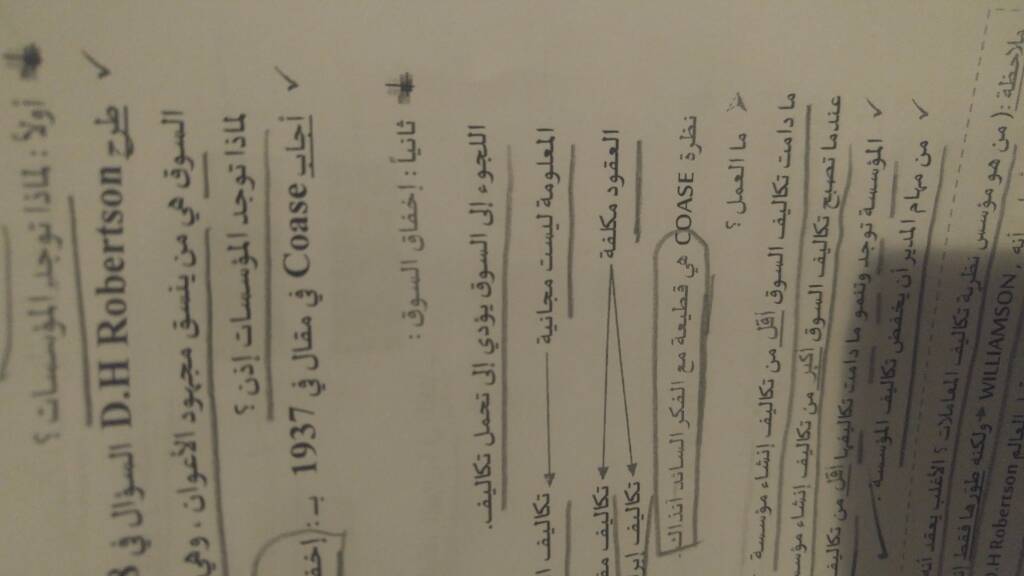 أولاً : لماذا توجد المؤسسات ؟
طرح D.H Robertson السؤال في
السوق هي من ينسق مجهود الأعوان ، وهي
لماذا توجد المؤسسات إذن ؟
أجاب Coase في مقال في 1937 بـ :
ثانياً : إخفاق السوق :
اللجوء إلى السوق يؤدي إلى تحمل تكاليف.
المعلومة ليست مجانية تكاليف
العقود مكلفة تكاليف
تكاليف
نظرة COASE هي قطيعة مع الفكر السائد آنذاك
ما العمل ؟
ما دامت تكاليف السوق أقل من تكاليف إنشاء مؤسسة
عندما تصبح تكاليف السوق أكبر من تكاليف إنشاء
المؤسسة توجد وتنمو ما دامت تكاليفها أقل من تكاليف
من مهام المدير أن يخفض تكاليف المؤسسة.
ملاحظة : ( من هو مؤسس نظرية تكاليف المعاملات ؟ الأغلب يعتقد أنه
WILLIAMSON ولكنه طورها فقط
D.H Robertson